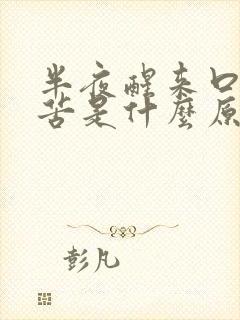 半夜醒来口
苦是什麼原
彭凡